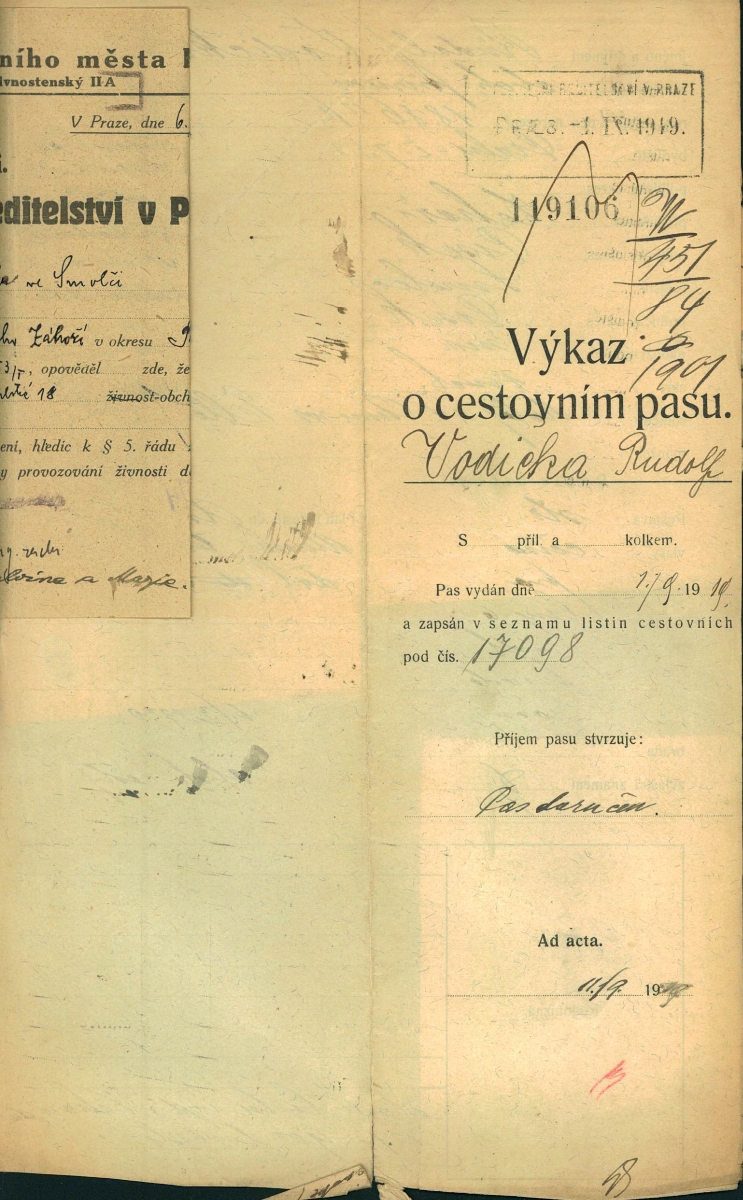 ního města
vnostenský II-A
V Praze, dne 6.
editelství v P
ve Smolči
Záhoří v okresu
opověděl zde, že
18 živnost-obch
ení, hledíc k § 5. řádu
y provozování živnosti
a Marie.
ŘEDITELSTVÍ V PRAZE
PRAES. -1. IX. 1919.
119106
IV
451
84
1901
Výkaz
o cestovním pasu.
Vodicka Rudolf
S příl. a kolkem.
Pas vydán dne 1./9. 1919.
a zapsán v seznamu listin cestovních
pod čís. 17098
Příjem pasu stvrzuje:
Pas doručen.
Ad acta.
11./9. 1919